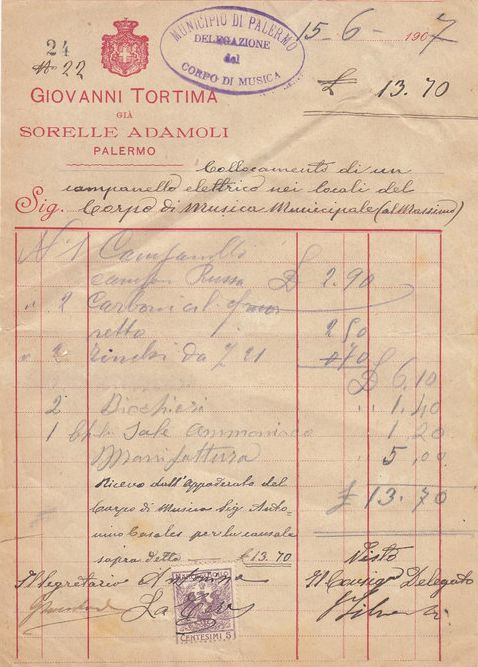 24
No 22
MUNICIPIO DI PALERMO
DELEGAZIONE
del
CORPO DI MUSICA
15-6-1907
£ 13.70
GIOVANNI TORTIMA
GIÀ
SORELLE ADAMOLI
PALERMO
Collocamento di un
campanello elettrico nei locali del
Sig. Corpo di Musica Municipale (al Massimo)
N° 1 Campanelli
campan Russa £ 2.90
" 2 Carboni
retto 2 50
" 2 Zinchi da 7 21 70
£ 6,10
2 Bicchieri " 1.40
1 Sale Ammoniaco " 1 20
Manifattura 5,00
£ 13.70
Ricevo dall'Appaderato del
Corpo di Musica Sig. Anto-
nino Casales per la causale
sopra detta £ 13.70
Visto
Il Segretario
Il Consigr Delegato
CENTESIMI 5